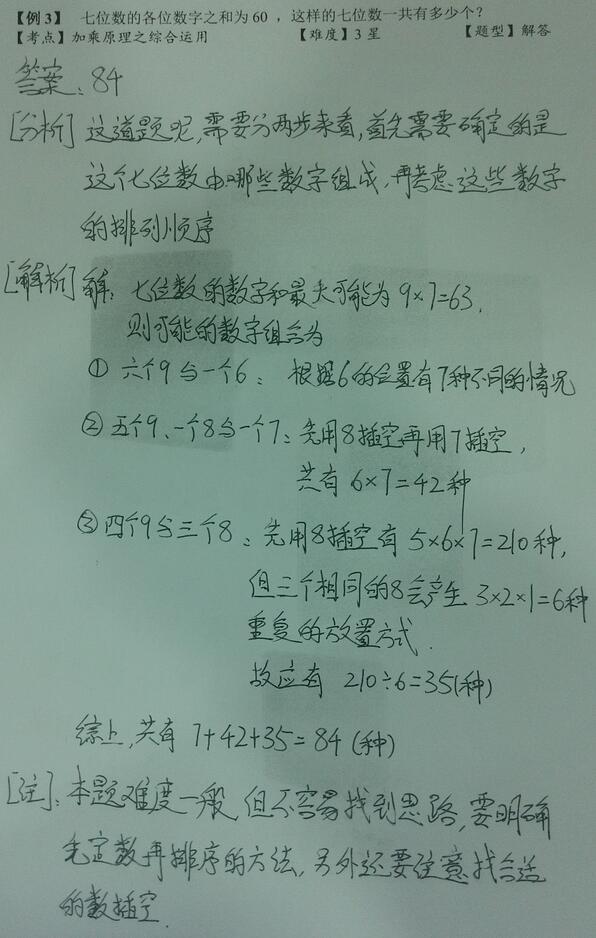 【例 3】 七位数的各位数字之和为 60 ，这样的七位数一共有多少个？
【考点】加乘原理之综合运用 【难度】3 星 【题型】解答
答案：84
[分析] 这道题呢，需要分两步来看，首先需要确定的是
这个七位数由哪些数字组成，再考虑这些数字
的排列顺序
[解析] 解：七位数的数字和最大可能为 9×7=63，
则可能的数字组合为
① 六个9与一个6：根据6的位置有7种不同的情况
② 五个9、一个8与一个7：先用8插空再用7插空，
共有 6×7=42种
③ 四个9与三个8：先用8插空有 5×6×7=210种，
但三个相同的8会产生 3×2×1=6种
重复的放置方式．
故应有 210÷6=35(种)
综上，共有 7+42+35=84 (种)
[注]：本题难度一般，但不容易找到思路，要明确
先定数再排序的方法，另外还要注意找合适
的数插空．